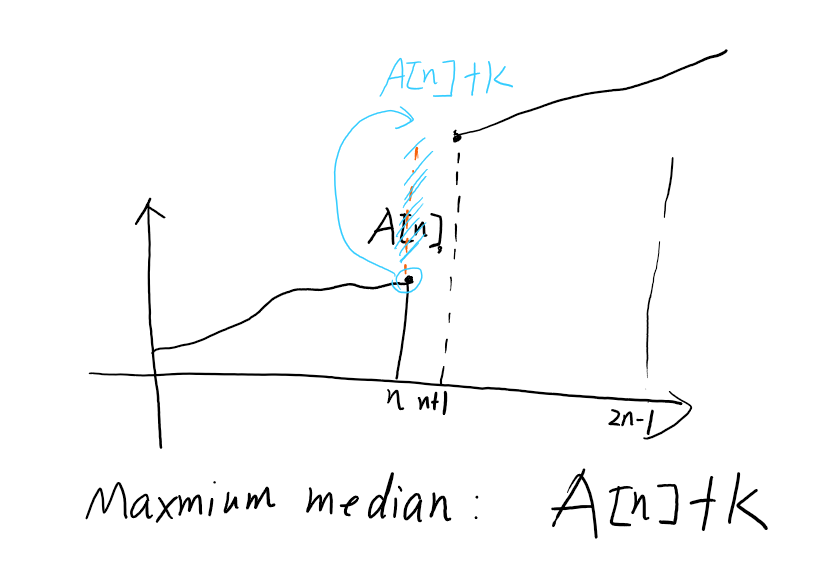 A[n]+k
A[n]
n n+1
2n-1
Maxmium median: A[n]+k